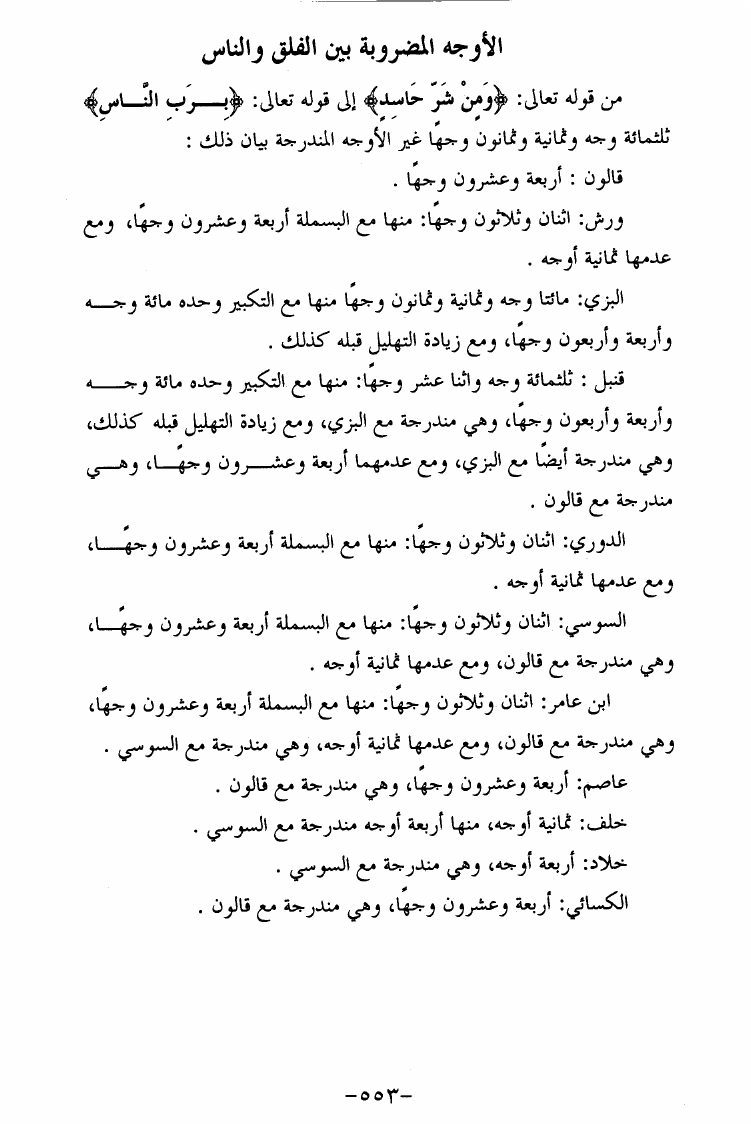 الأوجه المضروبة بين الفلق والناس
من قوله تعالى: ﴿وَمِنْ شَرِّ حَاسِدٍ﴾ إلى قوله تعالى: ﴿بِـرَبِ النَّـاسِ﴾
ثلثمائة وجه وثمانية وثمانون وجهًا غير الأوجه المندرجة بيان ذلك :
قالون : أربعة وعشرون وجهًا .
ورش: اثنان وثلاثون وجهًا: منها مع البسملة أربعة وعشرون وجهًا، ومع
عدمها ثمانية أوجه .
البزي: مائتا وجه وثمانية وثمانون وجهًا منها مع التكبير وحده مائة وجـه
وأربعة وأربعون وجهًا، ومع زيادة التهليل قبله كذلك .
قنبل : ثلثمائة وجه واثنا عشر وجهًا: منها مع التكبير وحده مائة وجـه
وأربعة وأربعون وجهًا، وهي مندرجة مع البزي، ومع زيادة التهليل قبله كذلك،
وهي مندرجة أيضًا مع البزي، ومع عدمهما أربعة وعشـرون وجهًـا، وهـي
مندرجة مع قالون .
الدوري: اثنان وثلاثون وجهًا: منها مع البسملة أربعة وعشرون وجهًـا،
ومع عدمها ثمانية أوجه .
السوسي: اثنان وثلاثون وجهًا: منها مع البسملة أربعة وعشرون وجهًـا،
وهي مندرجة مع قالون، ومع عدمها ثمانية أوجه .
ابن عامر: اثنان وثلاثون وجهًا: منها مع البسملة أربعة وعشرون وجهًا،
وهي مندرجة مع قالون، ومع عدمها ثمانية أوجه، وهي مندرجة مع السوسي .
عاصم: أربعة وعشرون وجهًا، وهي مندرجة مع قالون .
خلف: ثمانية أوجه، منها أربعة أوجه مندرجة مع السوسي .
خلاد: أربعة أوجه، وهي مندرجة مع السوسي .
الكسائي: أربعة وعشرون وجهًا، وهي مندرجة مع قالون .
-٥٥٣-